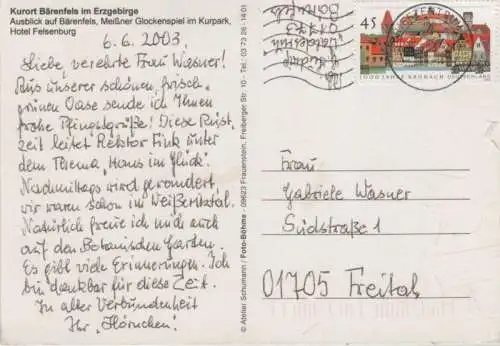 Kurort Bärenfels im Erzgebirge
Ausblick auf Bärenfels, Meißner Glockenspiel im Kurpark,
Hotel Felsenburg
6.6.2003
Liebe, verehrte Frau Wasner!
Aus unserer schönen, frisch-
grünen Oase sende ich Ihnen
frohe Pfingstgrüße! Diese Rüst-
zeit leitet Rektor Fink unter
dem Thema „Hans im Glück".
Nachmittags wird gewandert,
wir waren schon im Weißeritztal.
Natürlich freue ich mich auch
auf den Botanischen Garten.
Es gibt viele Erinnerungen. Ich
bin dankbar für diese Zeit.
In alter Verbundenheit
Ihr „Hörnchen"
© Atelier Schumann / Foto-Böhme - 09623 Frauenstein, Freiberger Str. 10 - Tel. 03 73 26 - 14 01
45
1000 JAHRE KRONACH DEUTSCHLAND
BRIEFZENTRUM
Frau
Gabriele Wasner
Südstraße 1
01705 Freital